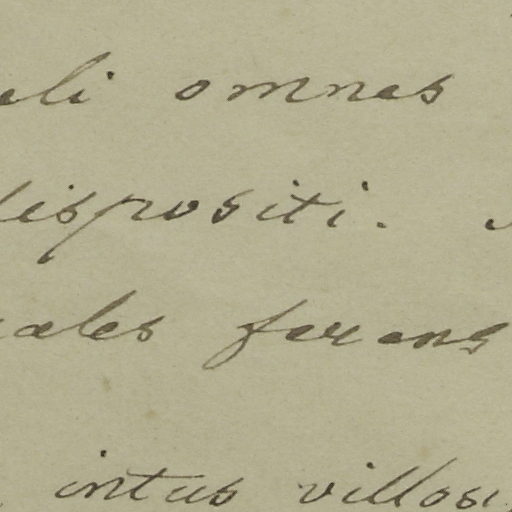 eli omnes
dispositi.
ales ferens
intus villosi